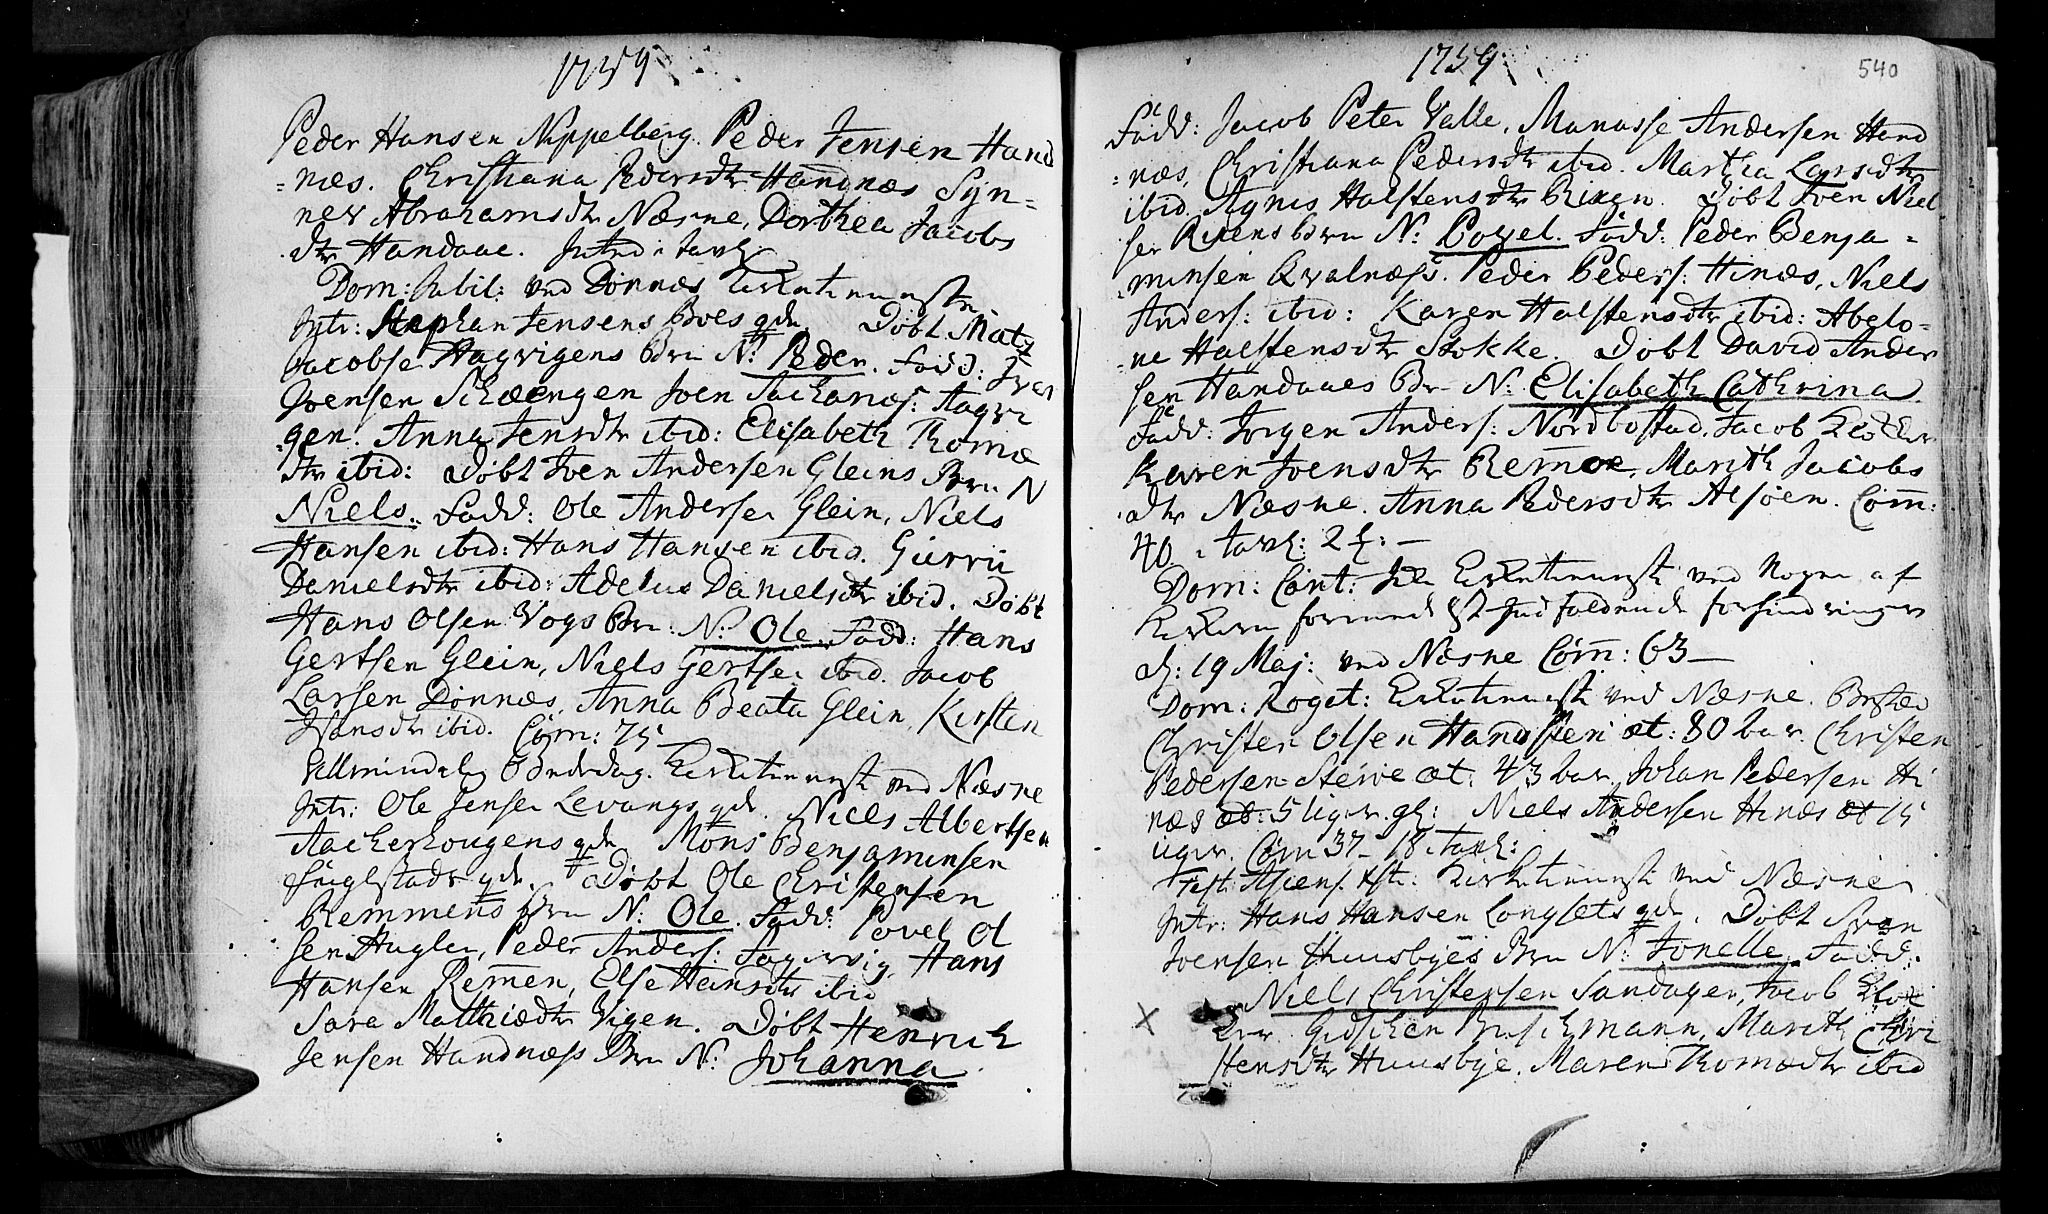 1759
Peder Hansen Nippelberg. Peder Jensen Hand
=næs. Christiana Pedersdtr Handnæs Syn=
nev Abrahamsdtr Næsne, Dorthea Jacobs
dtr Handaae.
Dom: Jubil: ved Dønnæs
Intr: Stephan Jensens Boes qde. Døbt Matz
Jacobse Hagvigens Brn N: Peder. Fadd: Iver
Joensen Schæengen Joen Sachariæs: Aagvi
gen. Anna Jensdtr ibid: Elisabeth Thomæ
dtr ibid: Døbt Joen Andersen Gleins Brn N
Niels. Fadd: Ole Andersen Glein, Niels
Hansen ibid: Hans Hansen ibid. Giurru
Danielsdtr ibid: Adelus Danielsdtr ibid. Døbt
Hans Olsen Vogs Brn: N: Ole. Fadd: Hans
Gertsen Glein, Niels Gertsen ibid. Jacob
Larsen Dønnæs, Anna Beata Glein, Kirsten
Hansdtr ibid. Com: 75
ved Næsne
Intr: Ole Jensen Levangs qde. Niels Albertsen
Aackerhougens qde Mons Benjaminsen
Fuglstads qde. Døbt Ole Christensen
Remmens Brn N: Ole. Fadd: Povel Ol
sen Hugler, Peder Anders: Fagervig, Hans
Hansen Remen, Else Hansdtr ibid
Sara Matthiædtr Vigen. Døbt Henrich
Jensen Handnæss Brn N: Johanna
1759
540
Fadd: Jacob Peter Valle, Manasse Andersen Hand
=næs, Christiana Pedersdtr ibid. Martha Larsdtr
ibid. Agnis Halstensdtr Rixen. Døbt Joen Niel
sen Rixens Brn N: Boyel. Fadd: Peder Benja=
minsen Qvalnæss. Peder Peders: Hinæs, Niels
Anders: ibid: Karen Halstensdtr ibid: Abelo=
=ne Halstensdtr Stokke. Døbt David Ander
sen Handaaes Br N: Elisabeth Cathrina
Fadd: Jørgen Anders: Nordbostad. Jacob Klokker
Karen Joensdtr Remoe, Marith Jacobs
dtr Næsne. Anna Pedersdtr Alsøen. Com:
40
Dom: Cant: ved Nogen af
d: 19 Maj: ved Næsne Com: 63 —
Dom: Roget: ved Næsne.
Christen Olsen Handsten æt: 80 Christen
Pedersen Steiroe æt: 43 Johan Pedersen Hi
næs æt: 5 uger gl: Niels Andersen Hinæs æt 15
uger. Com 37 — 18
Fest: Ascens. Xsti: ved Næsne
Intr: Hans Hansen Longsets qde. Døbt Sven
Joensen Huusbyes Brn N: Jonelle. Fadd:
Niels Christensen Sandager, Jacob Klok
ker Buschmann, Marith Chri
stensdtr Huusbye. Maren Thomædtr ibid